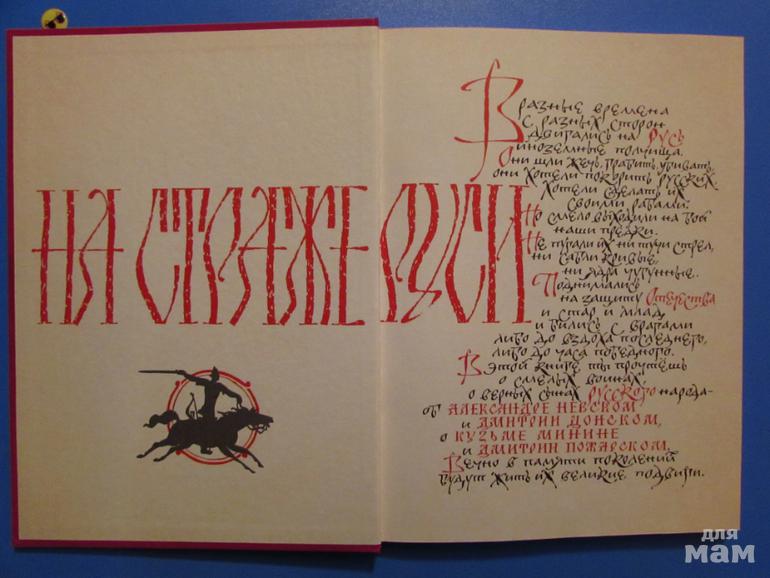 НА СТРАЖЕ РУСИ
В разные времена
с разных сторон
двигались на Русь
иноземные полчища.
Они шли жечь, грабить, убивать,
они хотели покорить русских,
хотели сделать их
своими рабами.
Но смело выходили на бой
наши предки.
Не пугали их ни тучи стрел,
ни сабли кривые,
ни ядра чугунные.
Поднимались
на защиту Отечества
и стар и млад
и бились с врагами
либо до вздоха последнего,
либо до часа победного.
В этой книге ты прочтёшь
о смелых воинах,
о верных сынах русского народа-
об АЛЕКСАНДРЕ НЕВСКОМ
и ДМИТРИИ ДОНСКОМ,
о КУЗЬМЕ МИНИНЕ
и ДМИТРИИ ПОЖАРСКОМ.
Вечно в памяти поколений
будут жить их великие подвиги.
для
мам